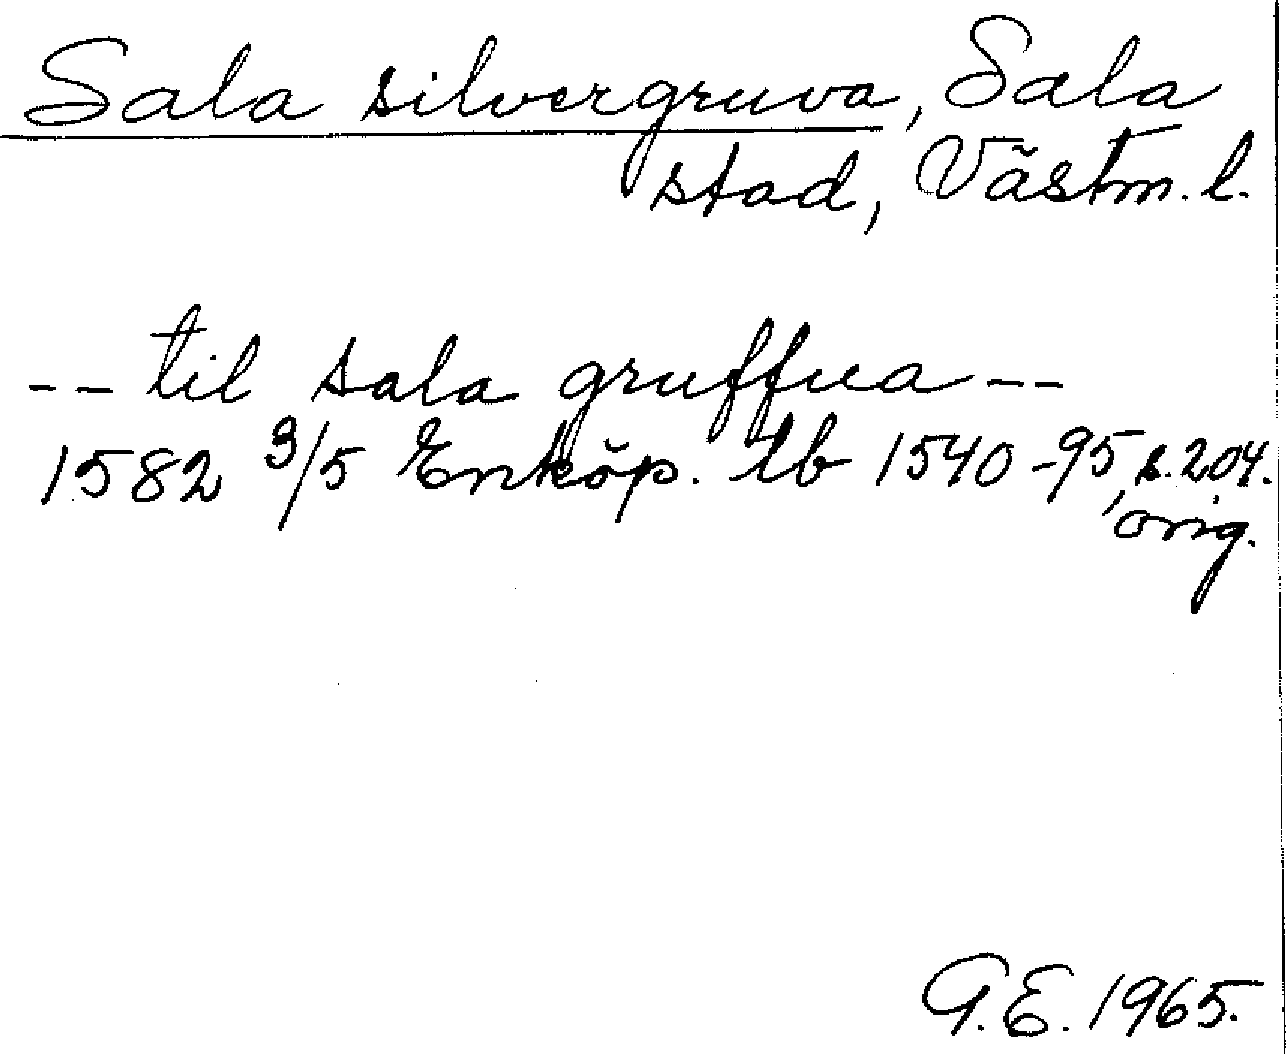 Sala silvergruva, Sala
stad, Västm. l.
-- til sala gruffua --
1582 3/5 Enköp. tb 1540-95, s. 204.
orig.
G.E. 1965.